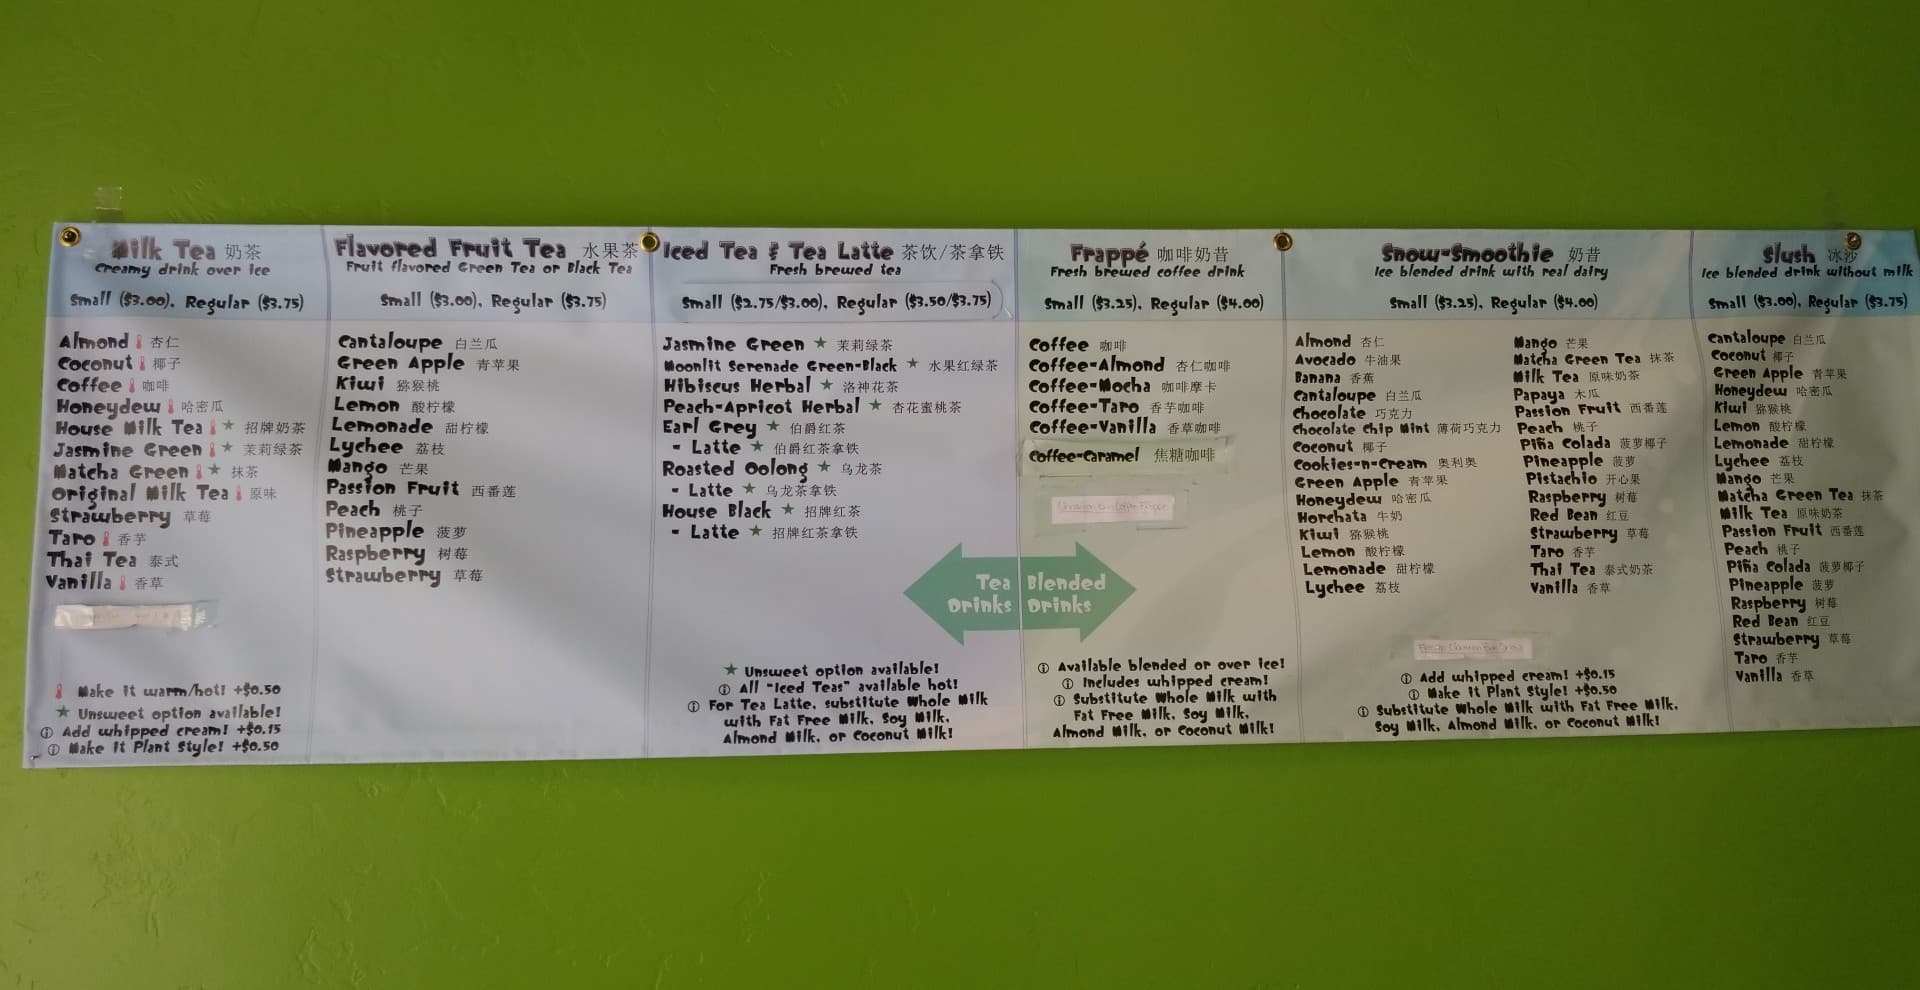 Milk Tea 奶茶
Creamy drink over ice
Small ($3.00), Regular ($3.75)
Almond 杏仁
Coconut 椰子
Coffee 咖啡
Honeydew 哈密瓜
House Milk Tea ★ 招牌奶茶
Jasmine Green ★ 茉莉绿茶
Matcha Green ★ 抹茶
Original Milk Tea 原味
Strawberry 草莓
Taro 香芋
Thai Tea 泰式
Vanilla 香草
Make it warm/hot! +$0.50
★ Unsweet option available!
ⓘ Add whipped cream! +$0.15
ⓘ Make it Plant Style! +$0.50
Flavored Fruit Tea 水果茶
Fruit flavored Green Tea or Black Tea
Small ($3.00), Regular ($3.75)
Cantaloupe 白兰瓜
Green Apple 青苹果
Kiwi 猕猴桃
Lemon 酸柠檬
Lemonade 甜柠檬
Lychee 荔枝
Mango 芒果
Passion Fruit 西番莲
Peach 桃子
Pineapple 菠萝
Raspberry 树莓
Strawberry 草莓
Iced Tea & Tea Latte 茶饮/茶拿铁
Fresh brewed tea
Small ($2.75/$3.00), Regular ($3.50/$3.75)
Jasmine Green ★ 茉莉绿茶
Moonlit Serenade Green-Black ★ 水果红绿茶
Hibiscus Herbal ★ 洛神花茶
Peach-Apricot Herbal ★ 杏花蜜桃茶
Earl Grey ★ 伯爵红茶
- Latte ★ 伯爵红茶拿铁
Roasted Oolong ★ 乌龙茶
- Latte ★ 乌龙茶拿铁
House Black ★ 招牌红茶
- Latte ★ 招牌红茶拿铁
Tea
Drinks
★ Unsweet option available!
ⓘ All "Iced Teas" available hot!
ⓘ For Tea Latte, substitute Whole Milk
with Fat Free Milk, Soy Milk,
Almond Milk, or Coconut Milk!
Frappé 咖啡奶昔
Fresh brewed coffee drink
Small ($3.25), Regular ($4.00)
Coffee 咖啡
Coffee-Almond 杏仁咖啡
Coffee-Mocha 咖啡摩卡
Coffee-Taro 香芋咖啡
Coffee-Vanilla 香草咖啡
Coffee-Caramel 焦糖咖啡
Blended
Drinks
ⓘ Available blended or over ice!
ⓘ Includes whipped cream!
ⓘ Substitute Whole Milk with
Fat Free Milk, Soy Milk,
Almond Milk, or Coconut Milk!
Snow-Smoothie 奶昔
Ice blended drink with real dairy
Small ($3.25), Regular ($4.00)
Almond 杏仁
Avocado 牛油果
Banana 香蕉
Cantaloupe 白兰瓜
Chocolate 巧克力
Chocolate Chip Mint 薄荷巧克力
Coconut 椰子
Cookies-n-Cream 奥利奥
Green Apple 青苹果
Honeydew 哈密瓜
Horchata 牛奶
Kiwi 猕猴桃
Lemon 酸柠檬
Lemonade 甜柠檬
Lychee 荔枝
Mango 芒果
Matcha Green Tea 抹茶
Milk Tea 原味奶茶
Papaya 木瓜
Passion Fruit 西番莲
Peach 桃子
Piña Colada 菠萝椰子
Pineapple 菠萝
Pistachio 开心果
Raspberry 树莓
Red Bean 红豆
Strawberry 草莓
Taro 香芋
Thai Tea 泰式奶茶
Vanilla 香草
ⓘ Add whipped cream! +$0.15
ⓘ Make it Plant Style! +$0.50
ⓘ Substitute Whole Milk with Fat Free Milk,
Soy Milk, Almond Milk, or Coconut Milk!
Slush 冰沙
Ice blended drink without milk
Small ($3.00), Regular ($3.75)
Cantaloupe 白兰瓜
Coconut 椰子
Green Apple 青苹果
Honeydew 哈密瓜
Kiwi 猕猴桃
Lemon 酸柠檬
Lemonade 甜柠檬
Lychee 荔枝
Mango 芒果
Matcha Green Tea 抹茶
Milk Tea 原味奶茶
Passion Fruit 西番莲
Peach 桃子
Piña Colada 菠萝椰子
Pineapple 菠萝
Raspberry 树莓
Red Bean 红豆
Strawberry 草莓
Taro 香芋
Vanilla 香草